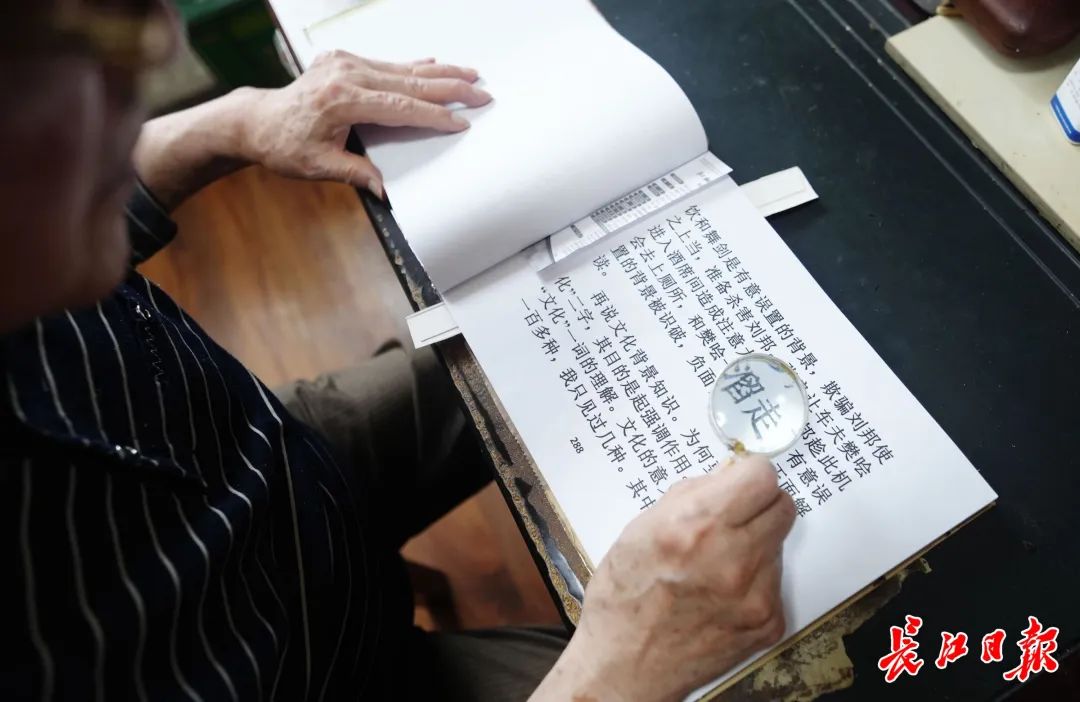 饮和舞剑是有意误置的背景，欺骗刘邦使
之上当，准备杀害刘邦，让车夫樊哙
进入酒席间造成注意邦趁此机
会去上厕所，和樊哙溜走有意误
置的背景被识破，负面面解
读。
再说文化背景知识。为何
化”二字，其目的是起强调作用。
“文化”一词的理解。文化的意
一百多种，我只见过几种。其中
288
长江日报